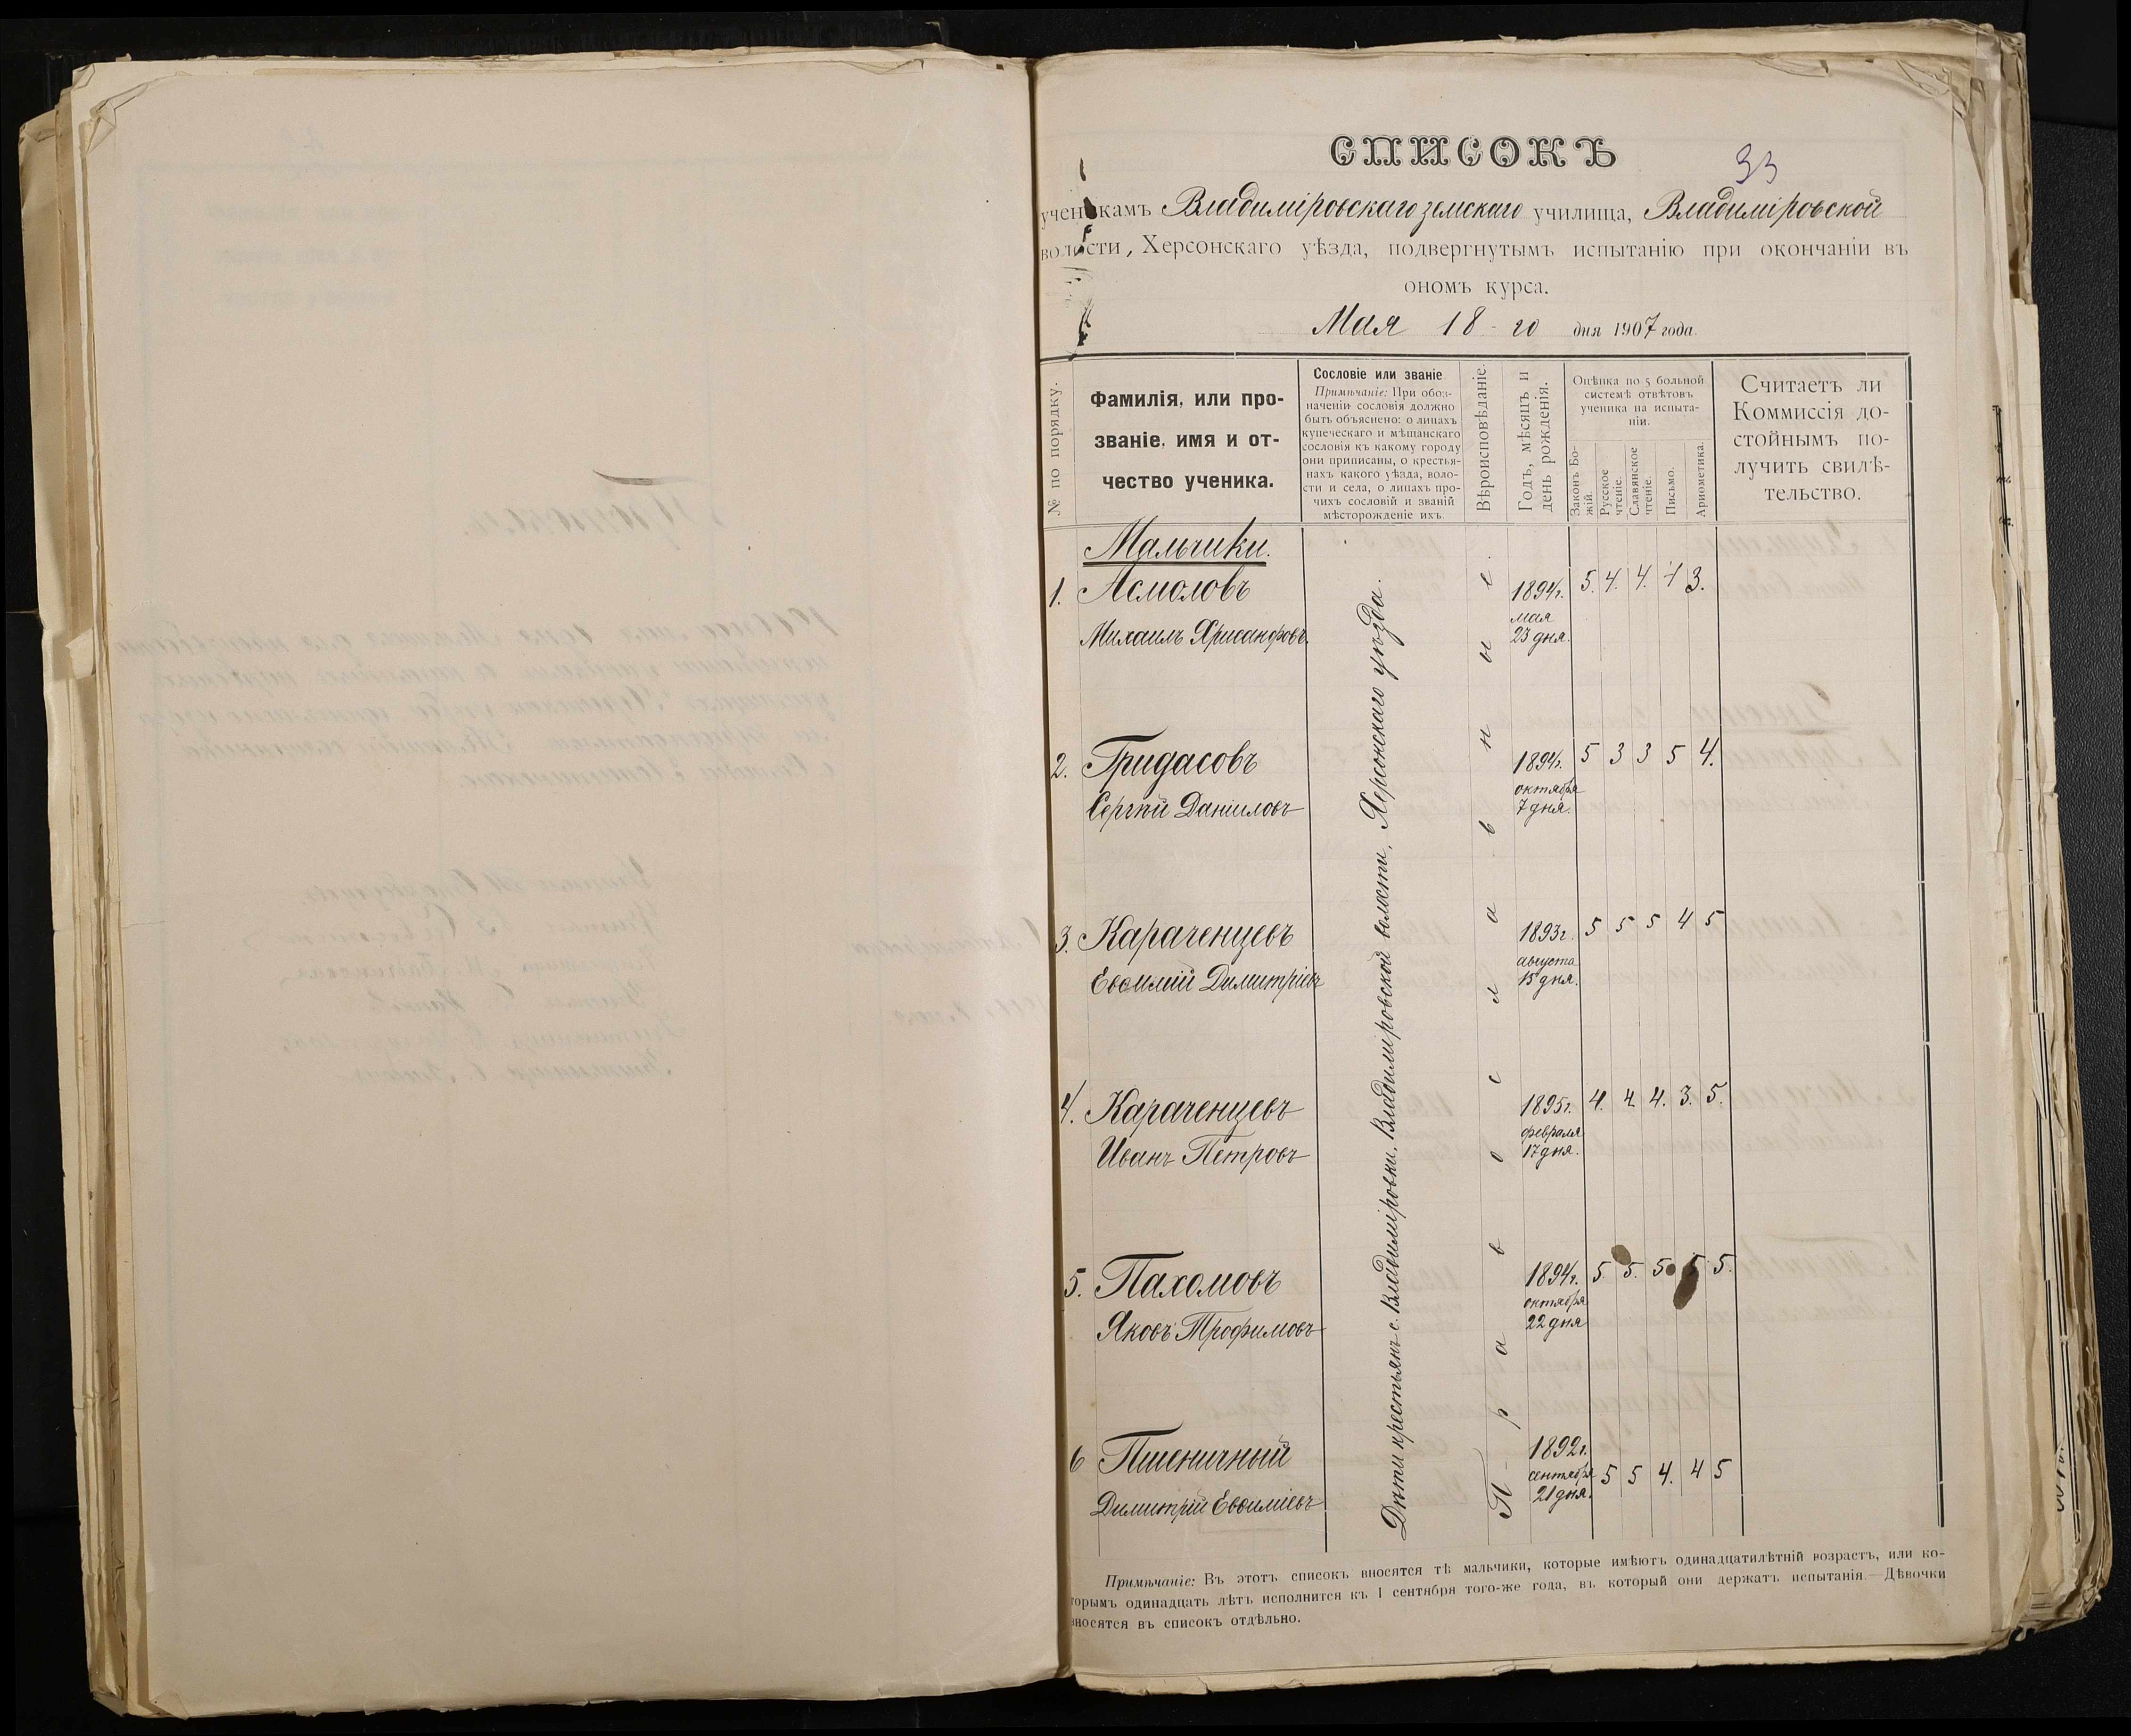 СПИСОКЪ
33
ученикамъ Владиміровскаго земскаго училища, Владиміровской
волости, Херсонскаго уѣзда, подвергнутымъ испытанію при окончаніи въ
ономъ курса.
Мая 18-го дня 1907 года.
№ по порядку.
Фамилія, или про-
званіе, имя и от-
чество ученика.
Сословіе или званіе
Примѣчаніе: При обоз-
наченіи сословія должно
быть объяснено: о лицахъ
купеческаго и мѣщанскаго
сословія къ какому городу
они приписаны, о крестья-
нахъ какого уѣзда, воло-
сти и села, о лицахъ про-
чихъ сословій и званій
мѣсторожденіе ихъ.
Вѣроисповѣданіе.
Годъ, мѣсяцъ и
день рожденія.
Оцѣнка по 5 больной
системѣ отвѣтовъ
ученика на испыта-
ніи.
Законъ Бо-
жій.
Русское
чтеніе.
Славянское
чтеніе.
Письмо.
Ариѳметика.
Считаетъ ли
Коммиссія до-
стойнымъ по-
лучить свидѣ-
тельство.
Мальчики.
1. Асмоловъ 1894г. 5. 4. 4. 4 3.
мая
Михаилъ Хрисанфовъ. 23 дня.
2. Гридасовъ 1894г. 5 3 3 5 4.
октября
Сергѣй Даніиловъ 7 дня.
3. Караченцевъ 1893г. 5 5 5 4 5
августа
Евѳимій Димитріевъ 15 дня.
4. Караченцевъ 1895г. 4. 4 4. 3. 5.
февраля
Иванъ Петровъ 17 дня.
5. Пахомовъ 1894г. 5. 5. 5. 5 5.
октября
Яковъ Трофимовъ 22 дня
6 Пшеничный 1892г.
сентября 5 5 4. 4 5
Димитрій Евѳиміевъ 21 дня.
Дѣти крестьянъ с. Владиміровки, Владиміровской волости, Херсонскаго уѣзда.
Православные.
Примѣчаніе: Въ этотъ списокъ вносятся тѣ мальчики, которые имѣютъ одинадцатилѣтній возрастъ, или ко-
торымъ одинадцать лѣтъ исполнится къ 1 сентября того-же года, въ который они держатъ испытанія.—Дѣвочки
вносятся въ списокъ отдѣльно.